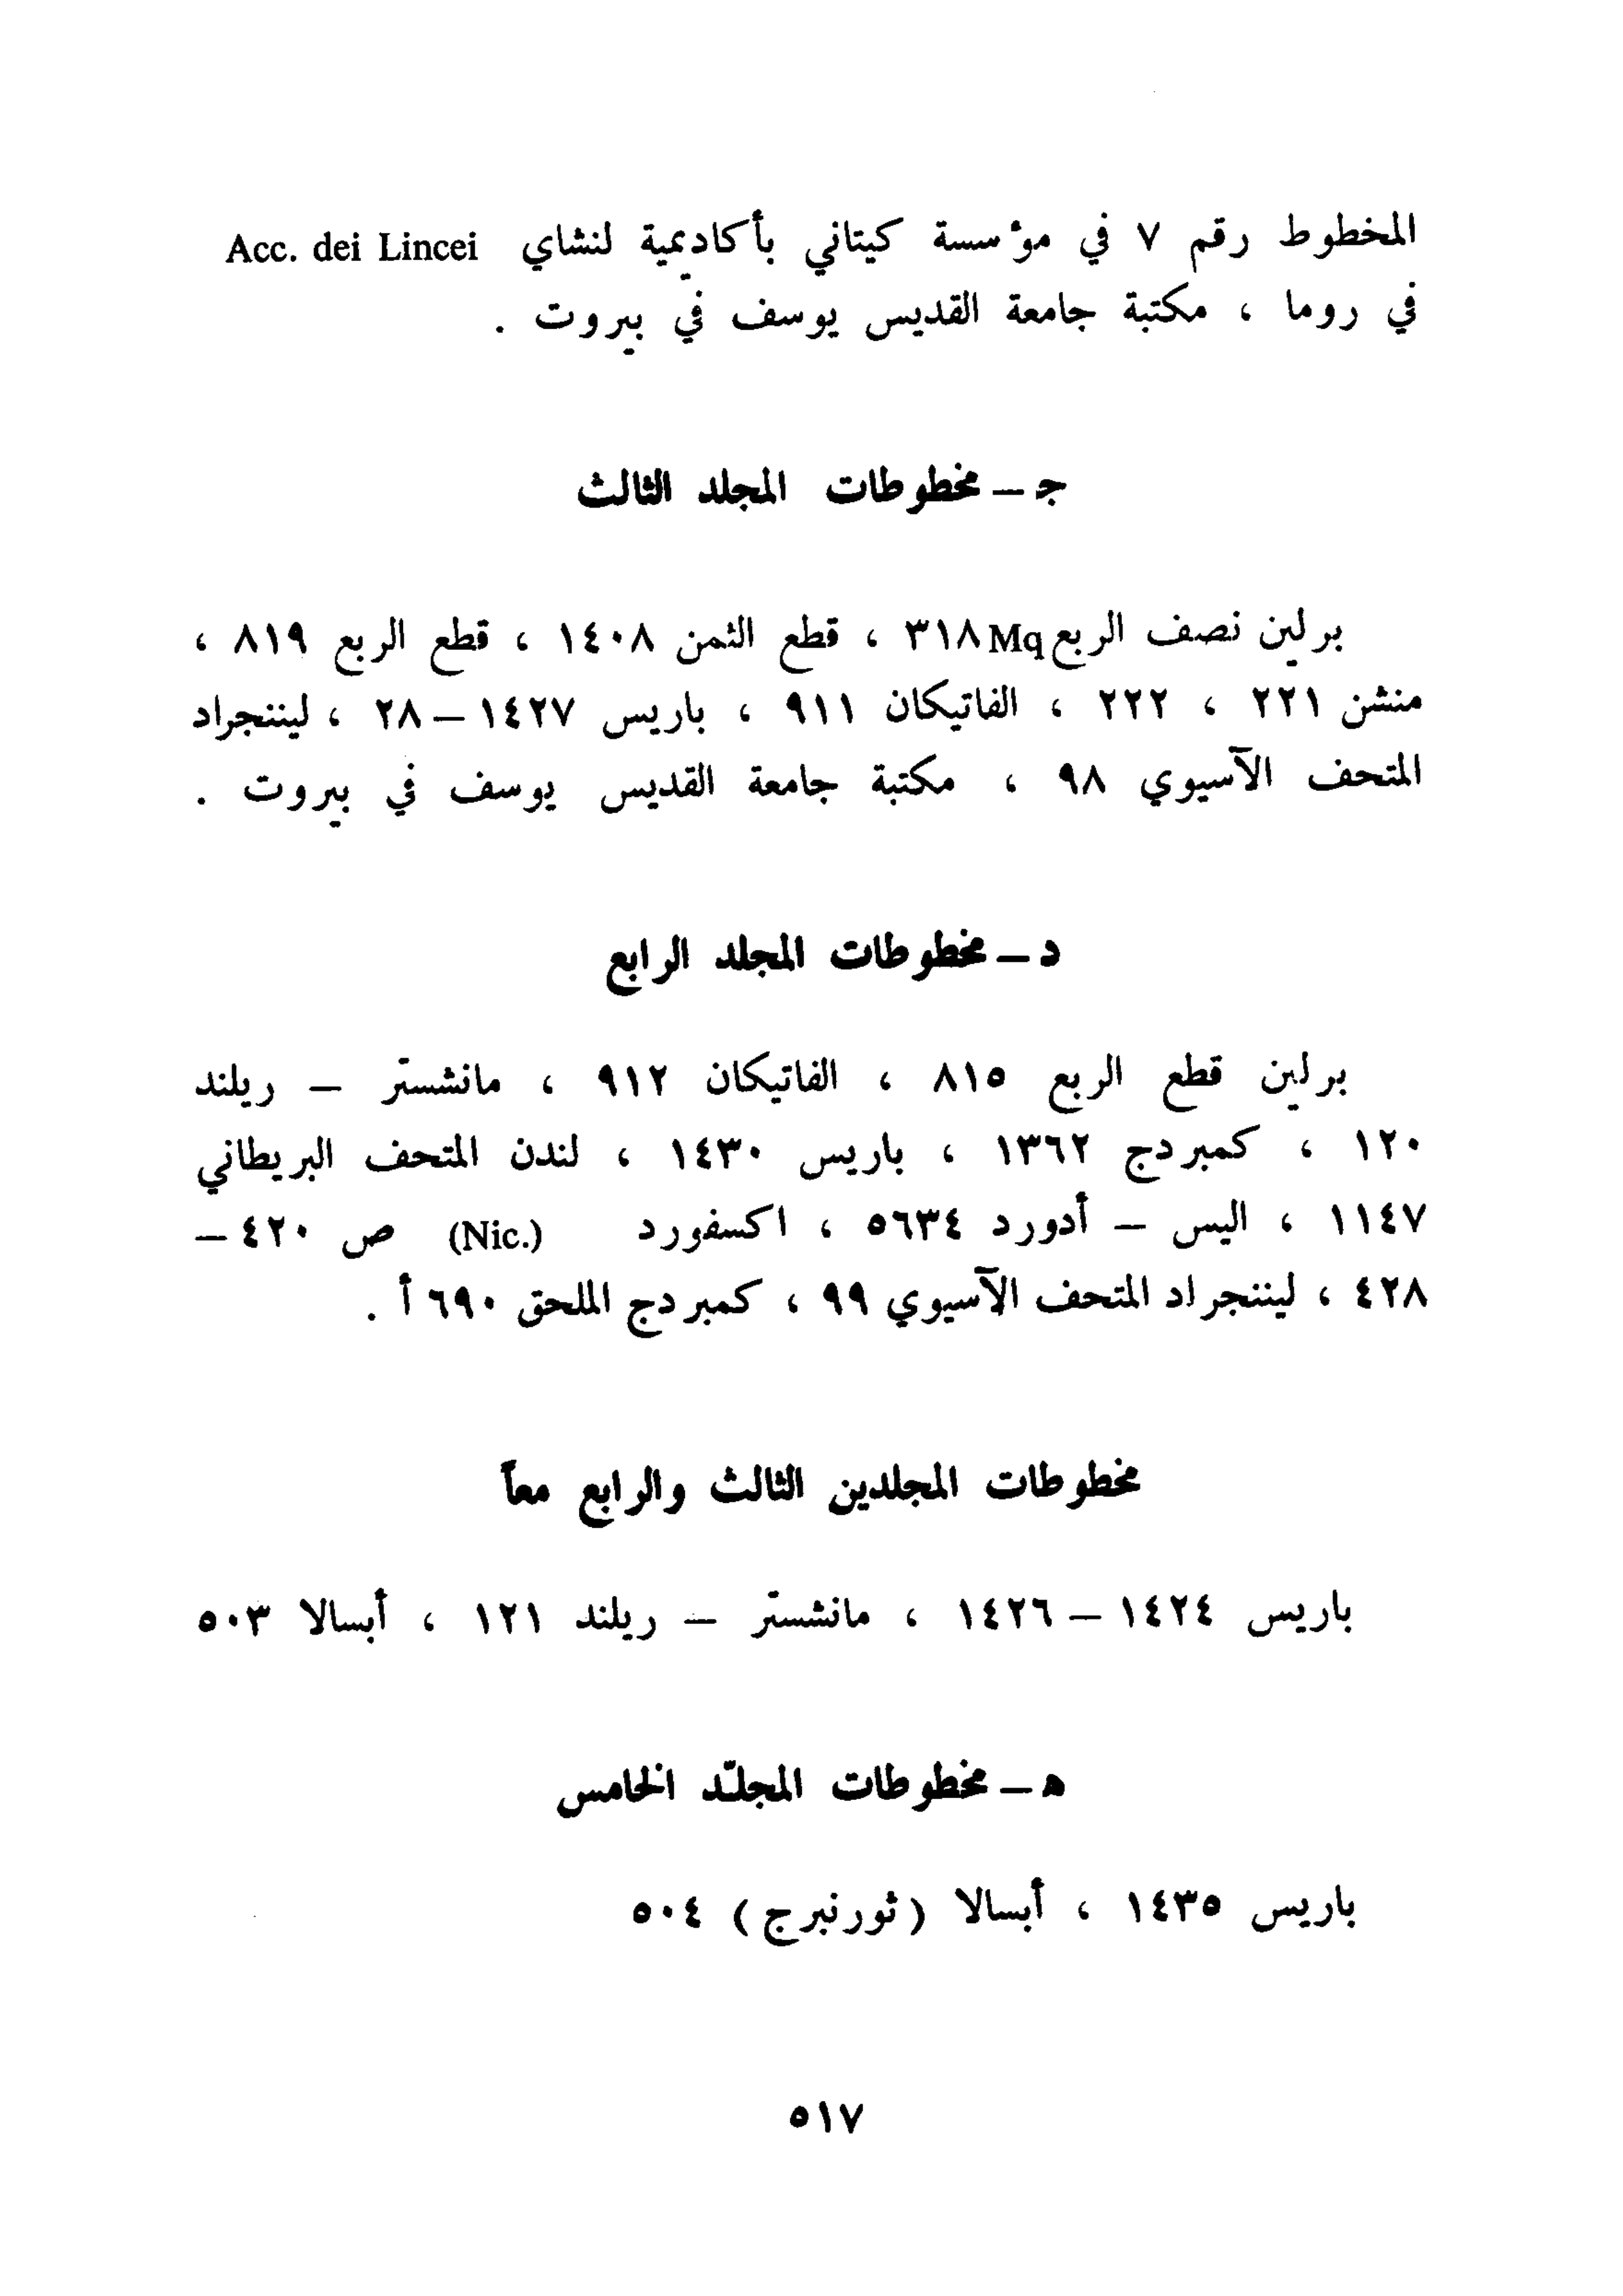 المخطوط رقم ٧ في مؤسسة كيتاني بأكاديمية لنشاي Acc. dei Lincei
في روما ، مكتبة جامعة القديس يوسف في بيروت .
جـ – مخطوطات المجلد الثالث
برلين نصف الربع Mq ٣١٨ ، قطع الثمن ١٤٠٨ ، قطع الربع ٨١٩ ،
منشن ٢٢١ ، ٢٢٢ ، الفاتيكان ٩١١ ، باريس ١٤٢٧ – ٢٨ ، ليننجراد
المتحف الآسيوي ٩٨ ، مكتبة جامعة القديس يوسف في بيروت .
د – مخطوطات المجلد الرابع
برلين قطع الربع ٨١٥ ، الفاتيكان ٩١٢ ، مانشستر – ريلند
١٢٠ ، كمبردج ١٣٦٢ ، باريس ١٤٣٠ ، لندن المتحف البريطاني
١١٤٧ ، اليس – أدورد ٥٦٣٤ ، اكسفورد (Nic.) ص ٤٢٠ –
٤٢٨ ، ليننجراد المتحف الآسيوي ٩٩ ، كمبردج الملحق ٦٩٠ أ .
مخطوطات المجلدين الثالث والرابع معاً
باريس ١٤٢٤ – ١٤٢٦ ، مانشستر – ريلند ١٢١ ، أبسالا ٥٠٣
ه – مخطوطات المجلّد الخامس
باريس ١٤٣٥ ، أبسالا ( ثورنبرج ) ٥٠٤
٥١٧